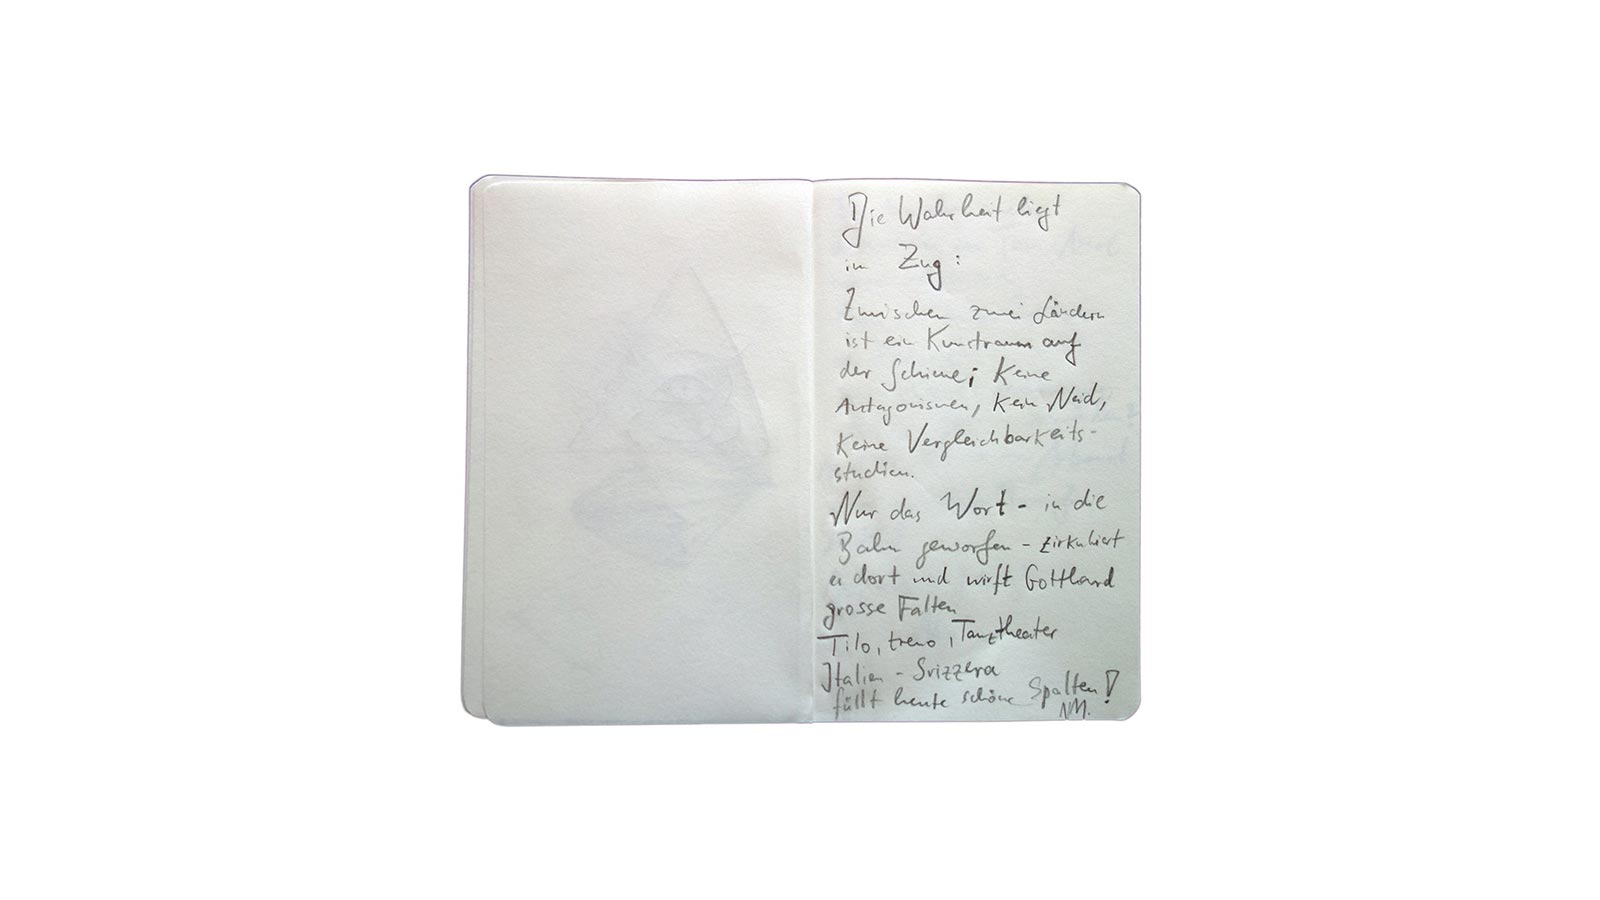 Die Wahrheit liegt
im Zug:
Zwischen zwei Ländern
ist ein Kunstraum auf
der Schiene; Keine
Antagonismen, kein Neid,
Keine Vergleichbarkeits-
studien.
Nur das Wort - in die
Bahn geworfen - zirkuliert
es dort und wirft Gotthard
grosse Falten
Tilo, treno, Tanztheater
Italien - Svizzera
füllt heute schöne Spalten!
NM.